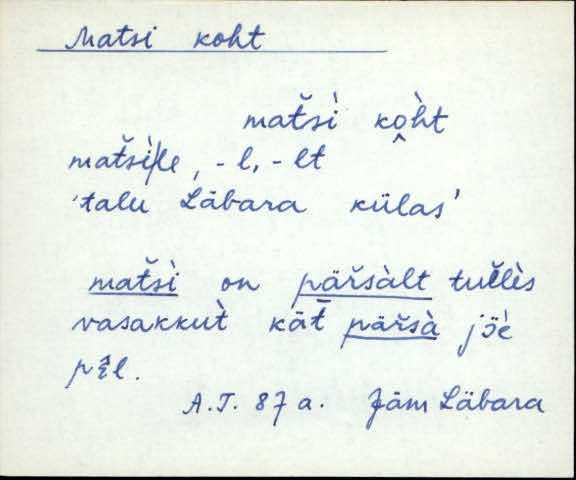 Matsi koht
mat̆sì ko̭h̀t
mat̆sìle, -l, -lt
'talu Läbara külas'
mat̆sì on pär̆sàlt tul̆lès
vasakkut̀ kät̄ pär̆sà jɔ̈è
pɛ̭̈l.
A.T. 87 a. Jäm Läbara